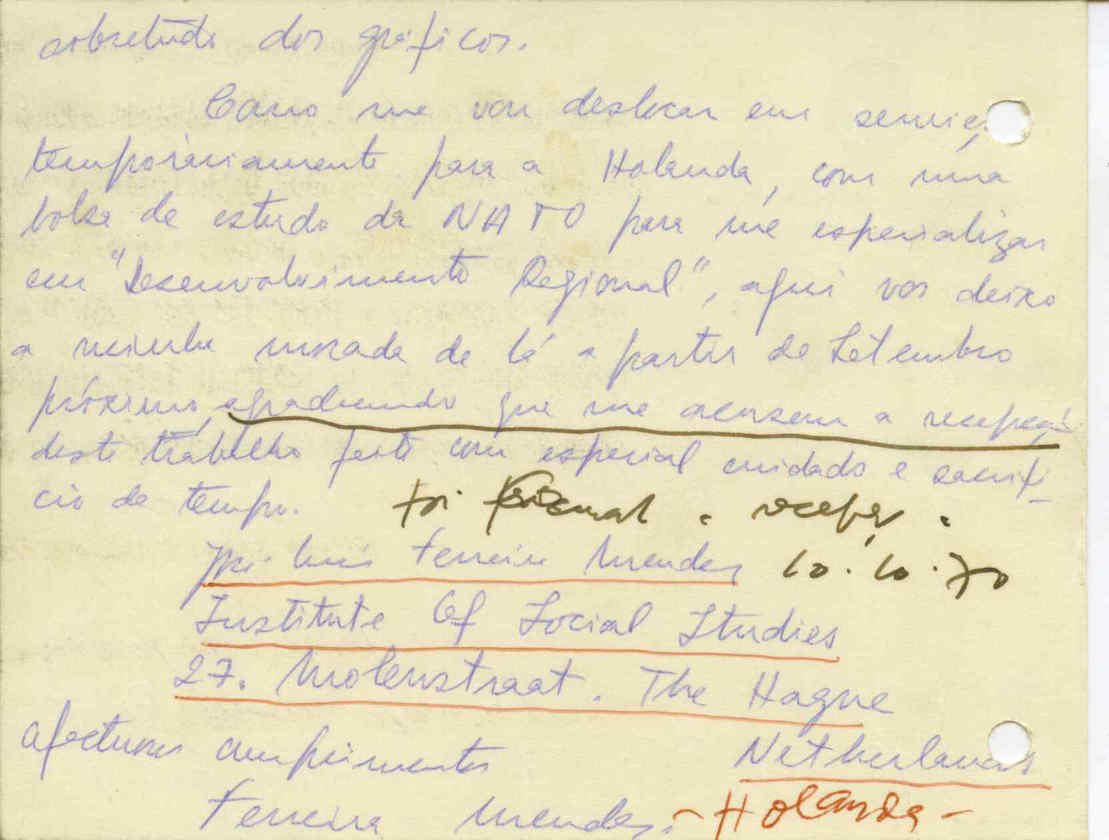 sobretudo dos gráficos.
Como me vou deslocar em serviço
temporáriamente para a Holanda, com uma
bolsa de estudo da NATO para me especializar
em "Desenvolvimento Regional", aqui vos deixo
a minha morada de lá a partir de Setembro
próximo, agradecendo que me acusem a recepção
deste trabalho feito com especial cuidado e sacrifí-
cio de tempo. foi recepç.
José Luís Ferreira Mendes 10.10.70
Institute Of Social Studies
27. Molenstraat. The Hague
afectuosos cumprimentos Netherlands
Ferreira Mendes. - Holanda -